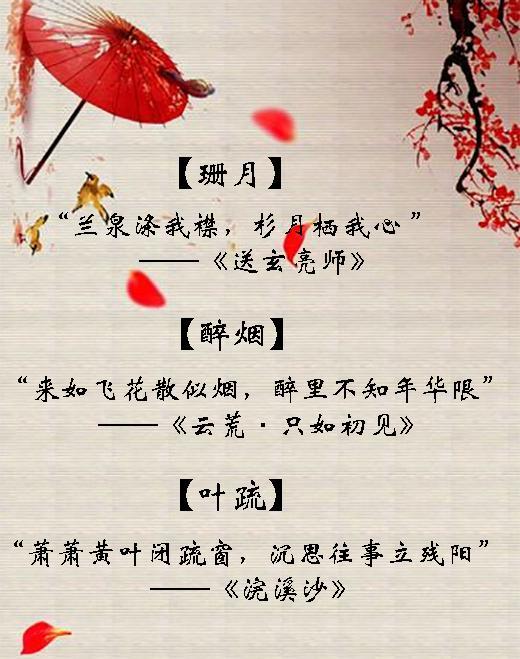 【珊月】
“兰泉涤我襟，杉月栖我心”
——《送玄亮师》
【醉烟】
“来如飞花散似烟，醉里不知年华限”
——《云荒·只如初见》
【叶疏】
“萧萧黄叶闭疏窗，沉思往事立残阳”
——《浣溪沙》